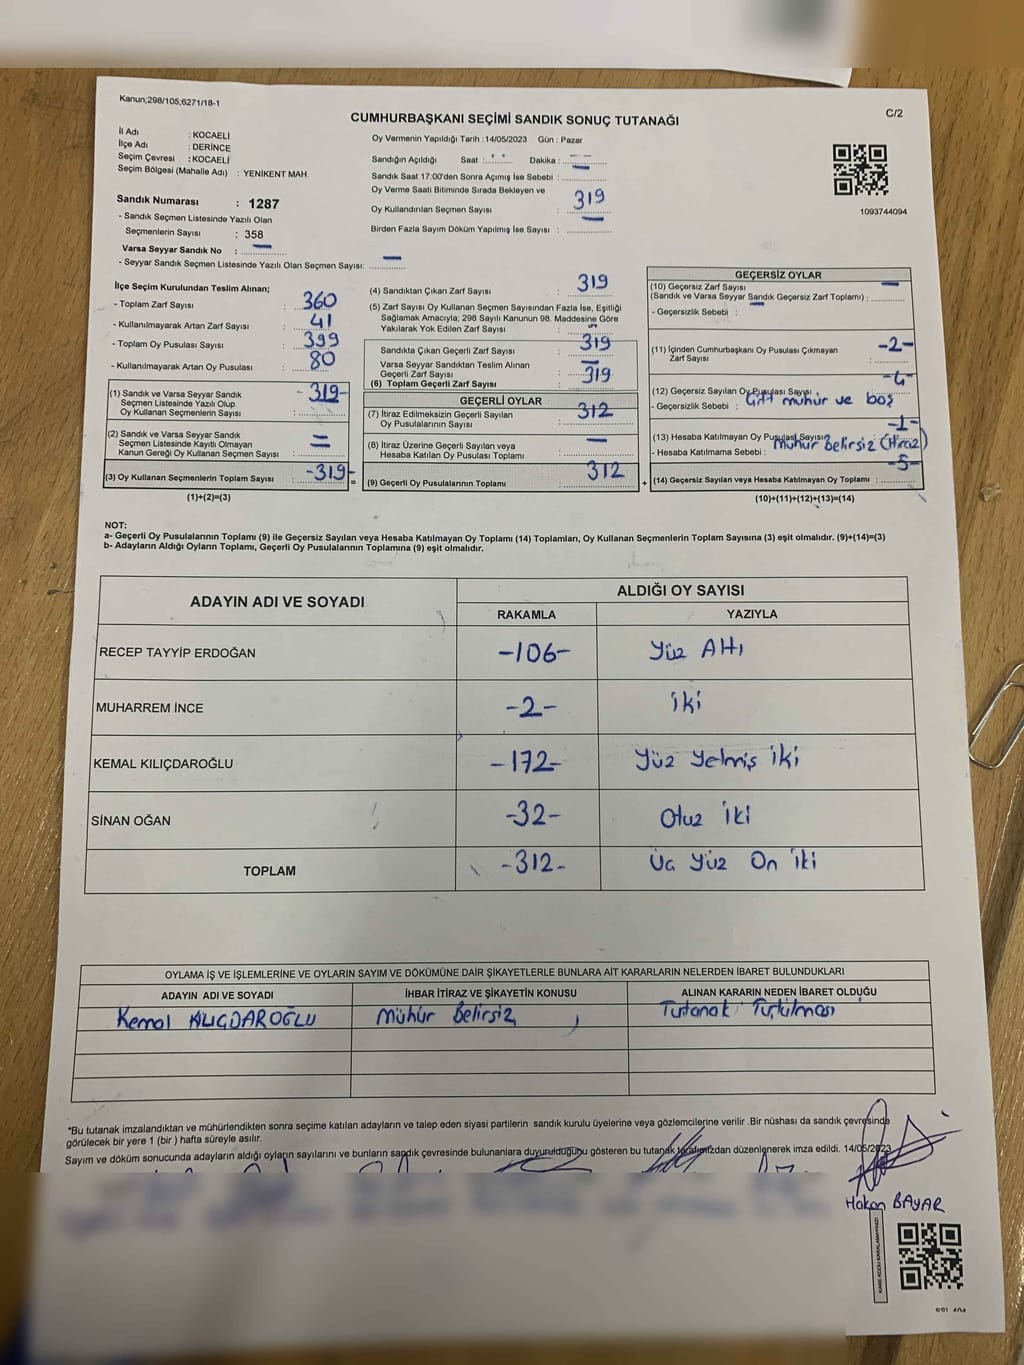 Kanun;298/105,6271/18-1
C/2
CUMHURBAŞKANI SEÇİMİ SANDIK SONUÇ TUTANAĞI
İl Adı : KOCAELİ
İlçe Adı : DERİNCE
Seçim Çevresi : KOCAELİ
Seçim Bölgesi (Mahalle Adı) : YENİKENT MAH.
Oy Vermenin Yapıldığı Tarih : 14/05/2023 Gün : Pazar
Sandığın Açıldığı Saat : Dakika :
Sandık Saat 17:00'den Sonra Açımış İse Sebebi :
Oy Verme Saati Bitiminde Sırada Bekleyen ve
Oy Kullandırılan Seçmen Sayısı : 319
Birden Fazla Sayım Döküm Yapılmış İse Sayısı :
1093744094
Sandık Numarası : 1287
- Sandık Seçmen Listesinde Yazılı Olan
Seçmenlerin Sayısı : 358
Varsa Seyyar Sandık No : —
- Seyyar Sandık Seçmen Listesinde Yazılı Olan Seçmen Sayısı: —
İlçe Seçim Kurulundan Teslim Alınan;
- Toplam Zarf Sayısı : 360
- Kullanılmayarak Artan Zarf Sayısı : 41
- Toplam Oy Pusulası Sayısı : 399
- Kullanılmayarak Artan Oy Pusulası : 80
(1) Sandık ve Varsa Seyyar Sandık
Seçmen Listesinde Yazılı Olup
Oy Kullanan Seçmenlerin Sayısı : -319-
(2) Sandık ve Varsa Seyyar Sandık
Seçmen Listesinde Kayıtlı Olmayan
Kanun Gereği Oy Kullanan Seçmen Sayısı : =
(3) Oy Kullanan Seçmenlerin Toplam Sayısı : -319-
(1)+(2)=(3)
(4) Sandıktan Çıkan Zarf Sayısı : 319
(5) Zarf Sayısı Oy Kullanan Seçmen Sayısından Fazla İse, Eşitliği
Sağlamak Amacıyla; 298 Sayılı Kanunun 98. Maddesine Göre
Yakılarak Yok Edilen Zarf Sayısı :
Sandıkta Çıkan Geçerli Zarf Sayısı : 319
Varsa Seyyar Sandıktan Teslim Alınan
Geçerli Zarf Sayısı : —
(6) Toplam Geçerli Zarf Sayısı : 319
GEÇERLİ OYLAR
(7) İtiraz Edilmeksizin Geçerli Sayılan
Oy Pusulalarının Sayısı : 312
(8) İtiraz Üzerine Geçerli Sayılan veya
Hesaba Katılan Oy Pusulası Toplamı : —
(9) Geçerli Oy Pusulalarının Toplamı : 312
GEÇERSİZ OYLAR
(10) Geçersiz Zarf Sayısı
(Sandık ve Varsa Seyyar Sandık Geçersiz Zarf Toplamı) : —
- Geçersizlik Sebebi : —
(11) İçinden Cumhurbaşkanı Oy Pusulası Çıkmayan
Zarf Sayısı : -2-
(12) Geçersiz Sayılan Oy Pusulası Sayısı -4-
- Geçersizlik Sebebi : Çift mühür ve boş
(13) Hesaba Katılmayan Oy Pusulası Sayısı -1-
- Hesaba Katılmama Sebebi : Mühür Belirsiz (İtiraz)
(14) Geçersiz Sayılan veya Hesaba Katılmayan Oy Toplamı : -5-
(10)+(11)+(12)+(13)=(14)
NOT:
a- Geçerli Oy Pusulalarının Toplamı (9) ile Geçersiz Sayılan veya Hesaba Katılmayan Oy Toplamı (14) Toplamları, Oy Kullanan Seçmenlerin Toplam Sayısına (3) eşit olmalıdır. (9)+(14)=(3)
b- Adayların Aldığı Oyların Toplamı, Geçerli Oy Pusulalarının Toplamına (9) eşit olmalıdır.
ADAYIN ADI VE SOYADI
ALDIĞI OY SAYISI
RAKAMLA YAZIYLA
RECEP TAYYİP ERDOĞAN -106- Yüz Altı
MUHARREM İNCE -2- İki
KEMAL KILIÇDAROĞLU -172- Yüz Yetmiş İki
SİNAN OĞAN -32- Otuz İki
TOPLAM -312- Üç Yüz On İki
OYLAMA İŞ VE İŞLEMLERİNE VE OYLARIN SAYIM VE DÖKÜMÜNE DAİR ŞİKAYETLERLE BUNLARA AİT KARARLARIN NELERDEN İBARET BULUNDUKLARI
ADAYIN ADI VE SOYADI İHBAR İTİRAZ VE ŞİKAYETİN KONUSU ALINAN KARARIN NEDEN İBARET OLDUĞU
Kemal KILIÇDAROĞLU Mühür Belirsiz Tutanak Tutulması
*Bu tutanak imzalandıktan ve mühürlendikten sonra seçime katılan adayların ve talep eden siyasi partilerin sandık kurulu üyelerine veya gözlemcilerine verilir .Bir nüshası da sandık çevresinde
görülecek bir yere 1 (bir ) hafta süreyle asılır.
Sayım ve döküm sonucunda adayların aldığı oyların sayılarını ve bunların sandık çevresinde bulunanlara duyurulduğunu gösteren bu tutanak tarafımızdan düzenlenerek imza edildi. 14/05/2023
Hakan BAYAR
KARE KODU KARALAMAYINIZ!